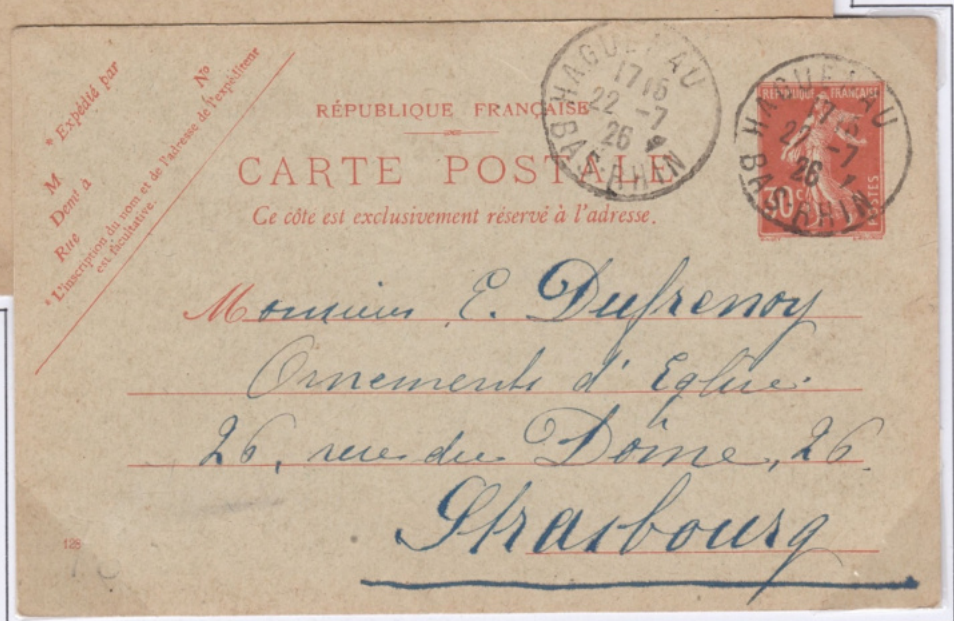 * Expédié par
No
M
Demt à
Rue
* L'inscription du nom et de l'adresse de l'expéditeur
est facultative.
RÉPUBLIQUE FRANÇAISE
CARTE POSTALE
Ce côte est exclusivement réservé à l'adresse.
HAGUENAU
17 16
22 -7
26
BAS-RHIN
HAGUENAU
17 16
22 -7
26
BAS-RHIN
REPUBLIQUE FRANÇAISE
30 c
POSTES
Monsieur E. Dufrenoy
Ornements d'Eglise
26, rue du Dôme, 26
Strasbourg
126